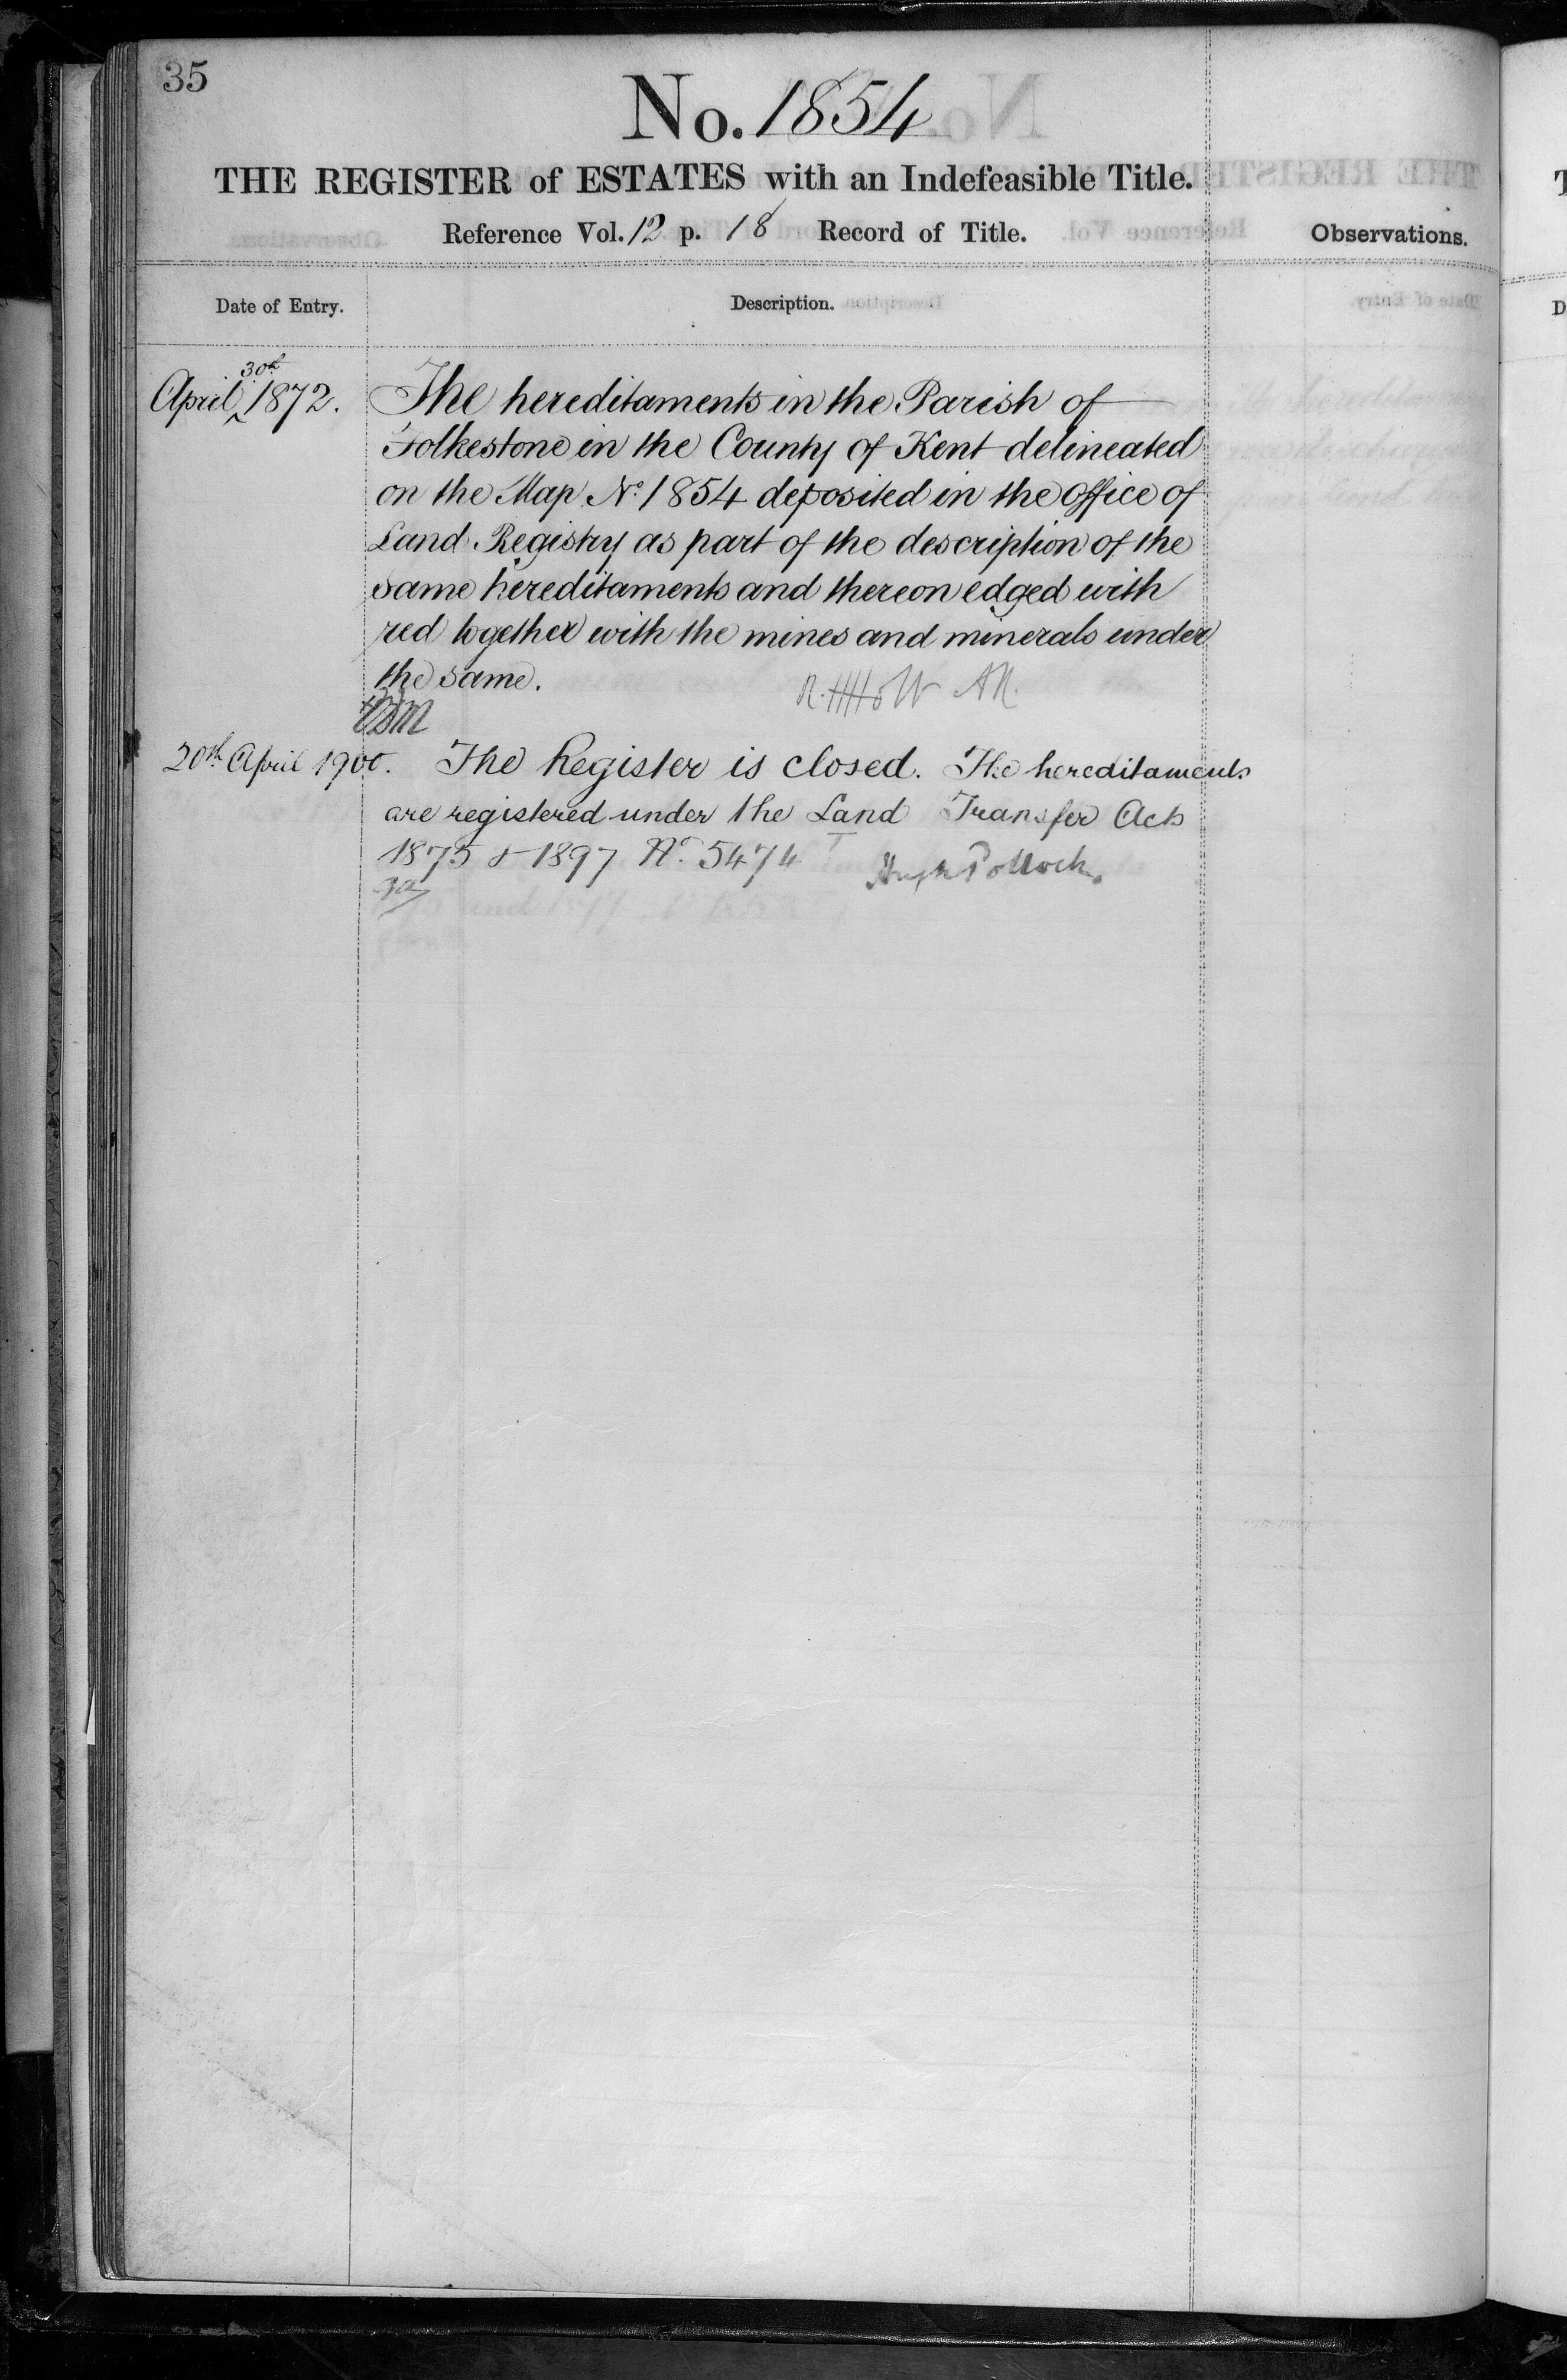 35
No. 1854
THE REGISTER of ESTATES with an Indefeasible Title.
Reference Vol. 12 p. 18 Record of Title.
Observations.
Date of Entry.
Description.
April 30th 1872.
The hereditaments in the Parish of
Folkestone in the County of Kent delineated
on the Map No. 1854 deposited in the office of
Land Registry as part of the description of the
same hereditaments and thereon edged with
red together with the mines and minerals under
the same.
R. H. Holt AR.
20th April 1900. The Register is closed. The hereditaments
are registered under the Land Transfer Acts
1875 & 1897 No. 5474
Hugh Pollock.